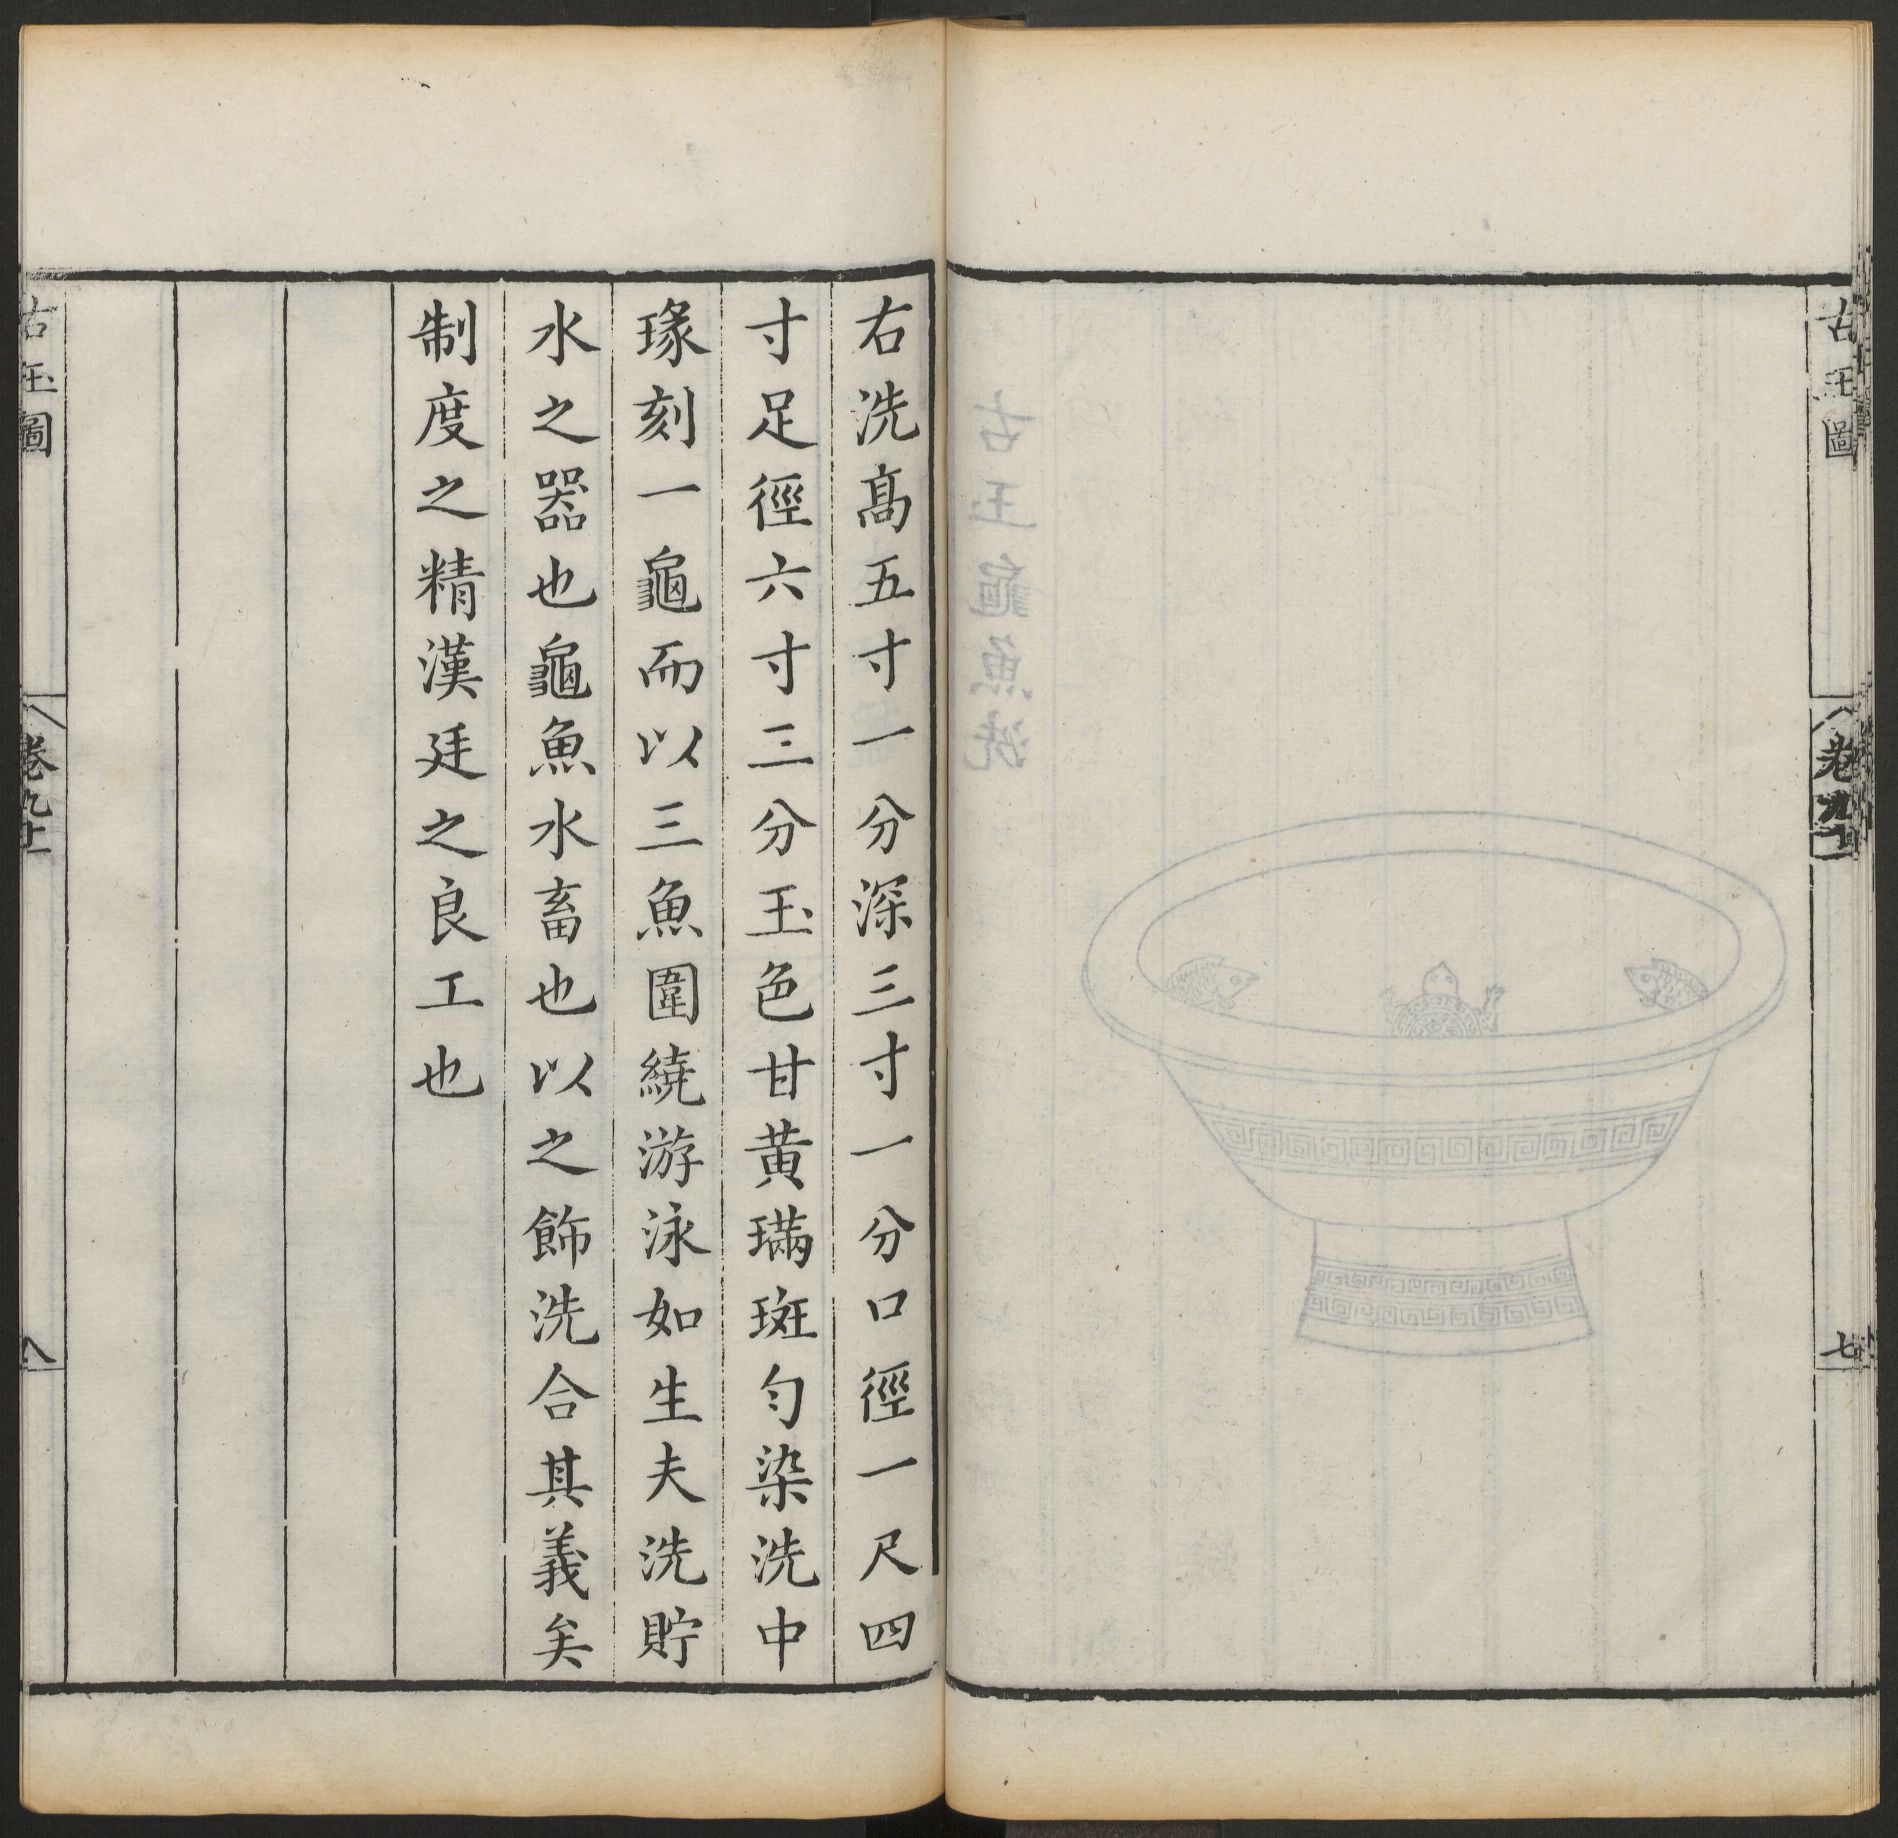 古玉圖
卷九十
七
古玉龜魚洗
右洗高五寸一分深三寸一分口徑一尺四
寸足徑六寸三分玉色甘黃璊斑勻染洗中
瑑刻一龜而以三魚圍繞游泳如生夫洗貯
水之器也龜魚水畜也以之飾洗合其義矣
制度之精漢廷之良工也
古玉圖
卷九十
八